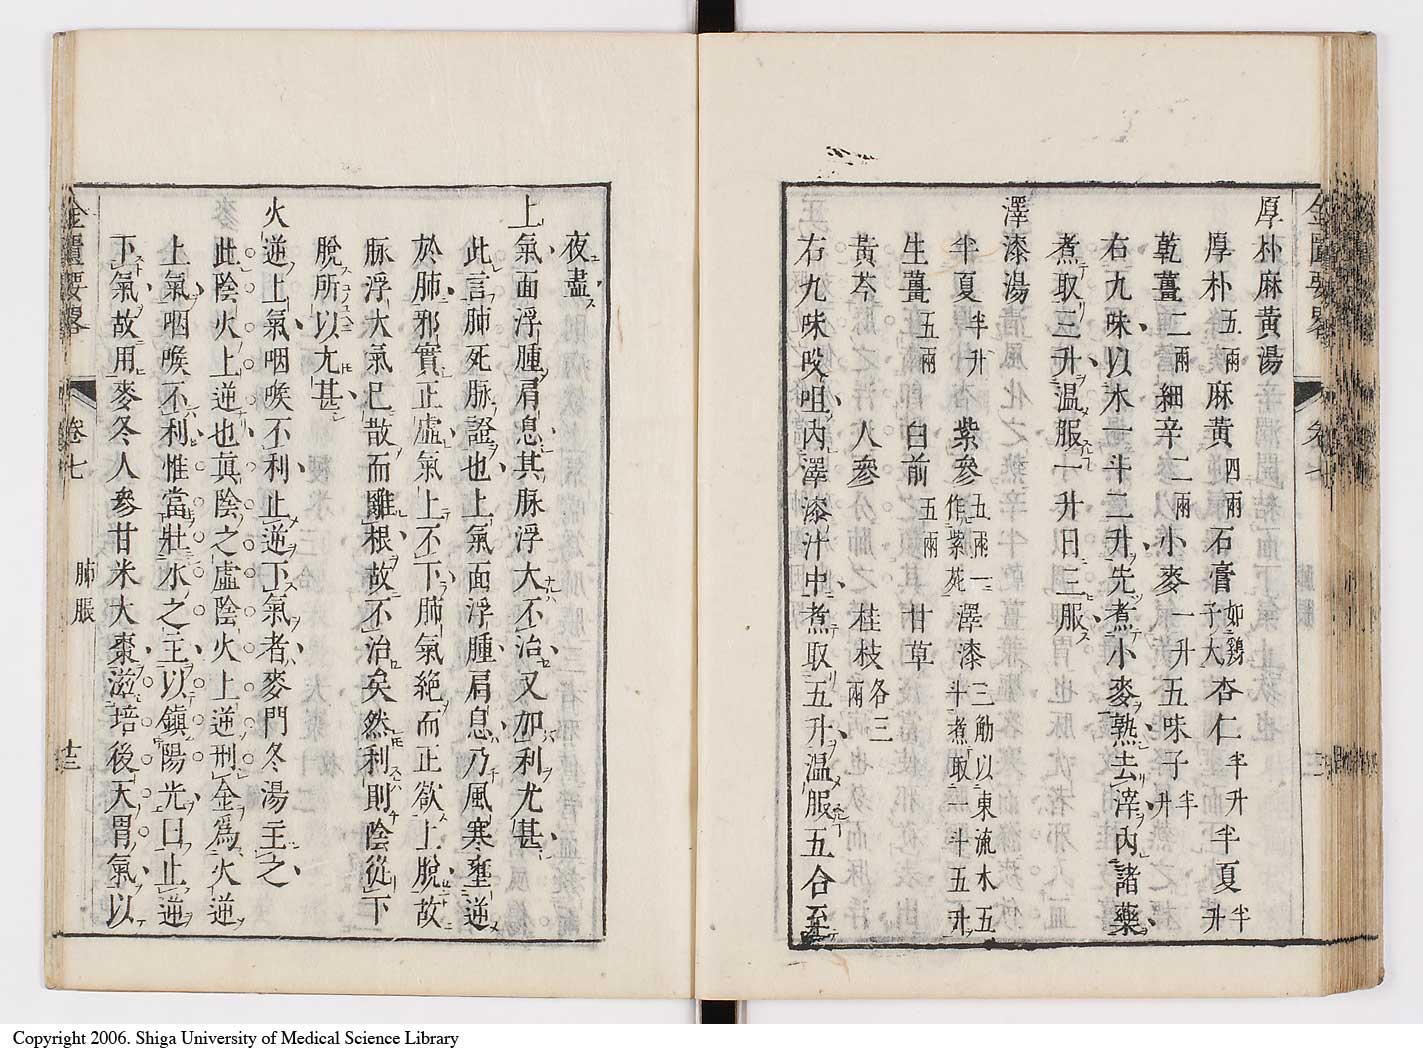 厚朴麻黄湯
厚朴五兩 麻黄四兩 石膏如鷄子大 杏仁半升 半夏半升
乾薑二兩 細辛二兩 小麥一升 五味子半升
右九味以水一斗二升先煮小麥熟去滓内諸藥
煮取三升温服一升日三服
澤漆湯
半夏半升 紫參五兩一作紫菀 澤漆三觔以東流水五斗煮取一斗五升
生薑五兩 白前五兩 甘草
黄芩 人參 桂枝各三兩
右九味㕮咀内澤漆汁中煮取五升温服五合至
夜盡
上氣面浮腫肩息其脉浮大不治又加利尤甚
此言肺死脉證也上氣面浮腫肩息乃風寒壅逆
於肺邪實正虚氣上不下肺氣絶而正欲上脫故
脉浮大氣已散而離根故不治矣然利則陰從下
脫所以尤甚
火逆上氣咽喉不利止逆下氣者麥門冬湯主之
此陰火上逆也眞陰之虚陰火上逆刑金爲火逆
上氣咽喉不利惟當壯水之主以鎮陽光曰止逆
下氣故用麥冬人參甘米大棗滋培後天胃氣以
金匱要畧 卷七 肺脹 十三
Copyright 2006. Shiga University of Medical Science Library